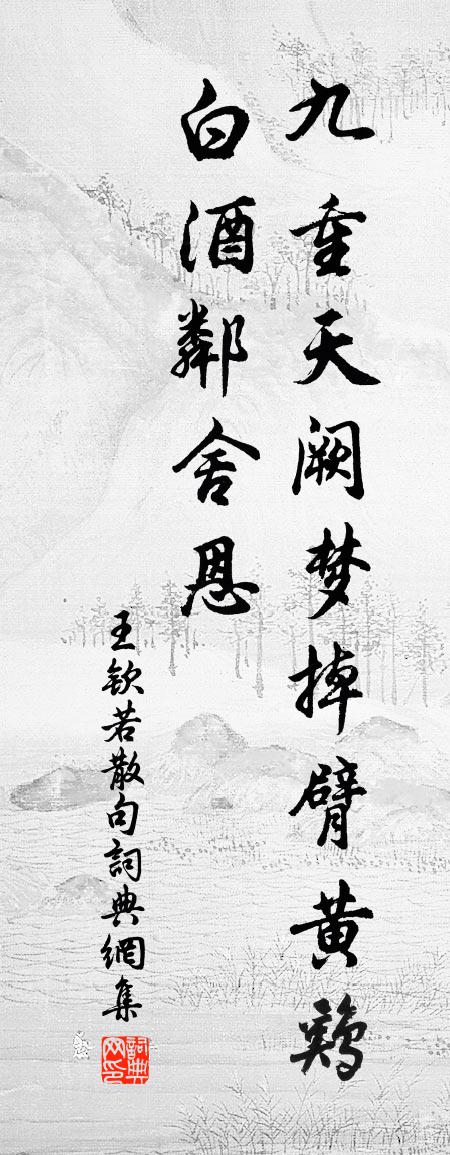 九重天阙梦掉臂黄鸡
白酒鄰舍恩
王钦若散句詞典網集
詞典网印